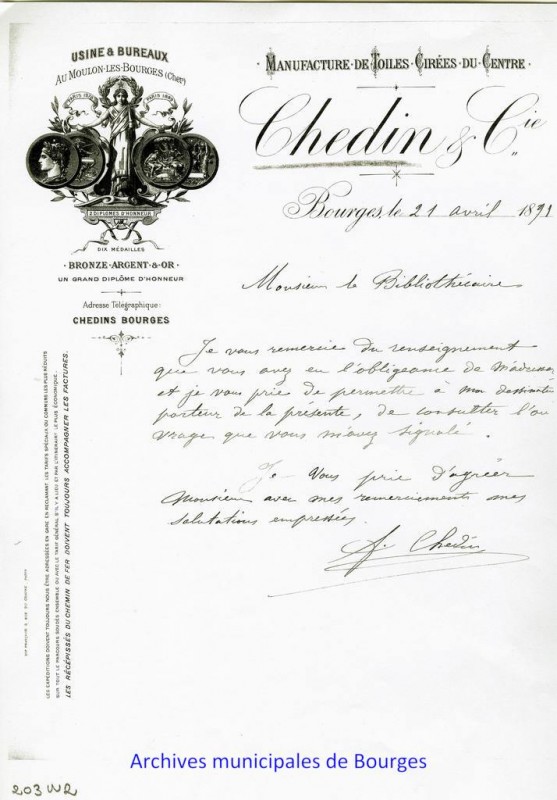 USINE & BUREAUX
AU MOULON-LES-BOURGES (Cher)
PARIS 1878
PARIS 1889
2 DIPLOMES D'HONNEUR
DIX MÉDAILLES
BRONZE-ARGENT-&-OR
UN GRAND DIPLÔME D'HONNEUR
Adresse Télégraphique:
CHEDINS BOURGES
MANUFACTURE-DE-TOILES-CIRÉES-DU-CENTRE
Chedin & Cie
Bourges, le 21 avril 1891
Monsieur le Bibliothécaire
Je vous remercie du renseignement
que vous avez eu l'obligeance de m'adresser
et je vous prie de permettre à mon dessinateur
porteur de la présente, de consulter l'ou
vrage que vous m'avez signalé.
Je vous prie d'agréer
Monsieur avec mes remerciements mes
salutations empressées.
Chedin
LES EXPÉDITIONS DOIVENT TOUJOURS NOUS ÊTRE ADRESSÉES EN GARE EN RÉCLAMANT LES TARIFS SPÉCIAUX OU COMMUNS LES PLUS RÉDUITS
SUR TOUT LE PARCOURS SOUDÉS ENSEMBLE OU AVEC LE TARIF GÉNÉRAL S'IL Y A LIEU ET PAR L'ITINÉRAIRE LE PLUS ÉCONOMIQUE.
LES RÉCÉPISSÉS DU CHEMIN DE FER DOIVENT TOUJOURS ACCOMPAGNER LES FACTURES.
Archives municipales de Bourges
203 W2